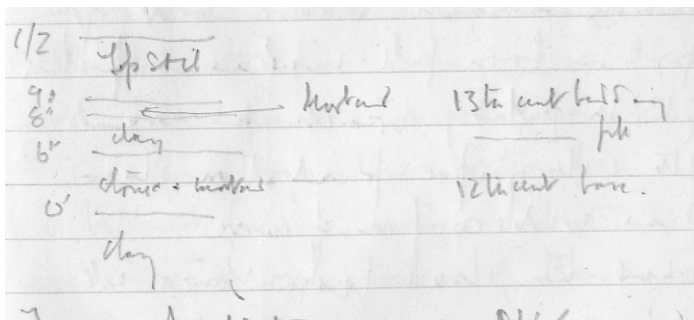 1/2
Top soil
9"
8" Mortar 13th cent building
6" clay
stone + mortar 12th cent base.
0'
clay